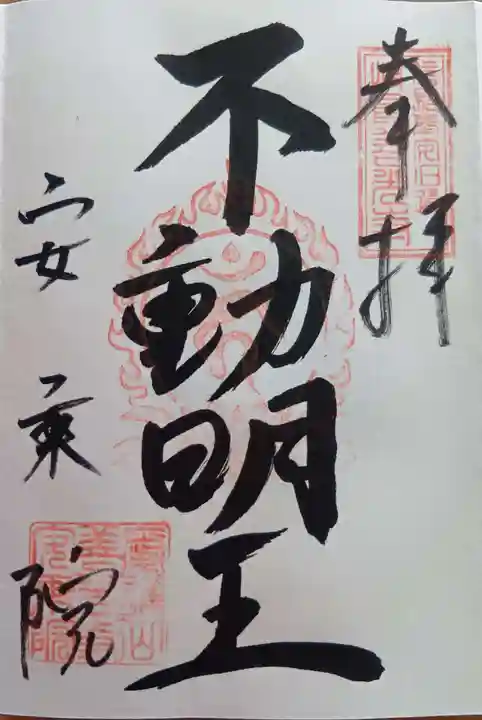 奉拝
不動明王
安乗院